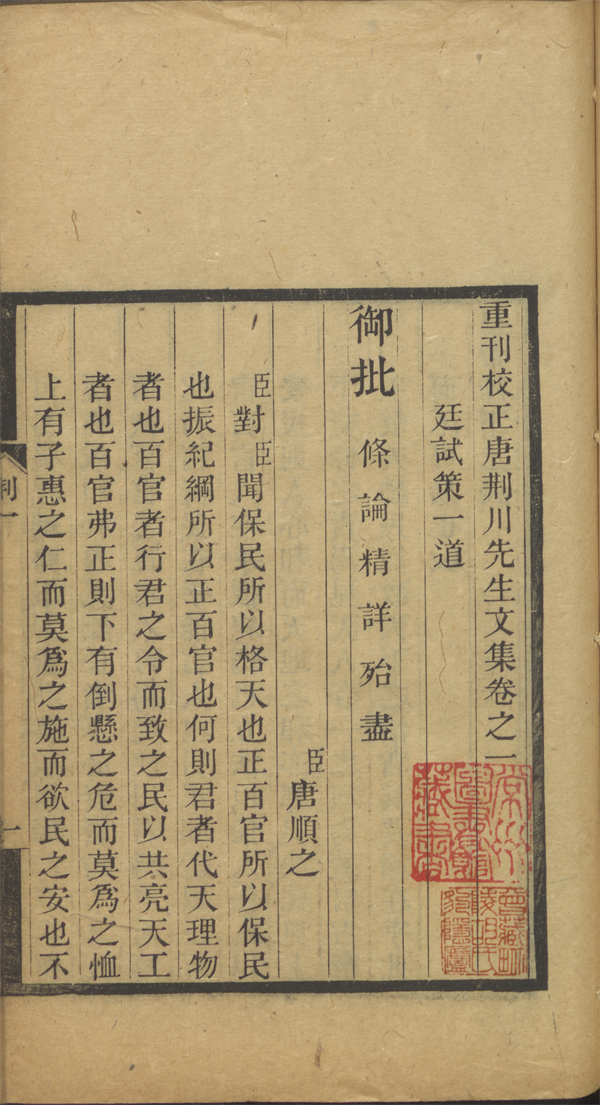 重刊校正唐荆川先生文集卷之一
廷試策一道
御批 條論精詳殆盡
臣唐順之
臣對臣聞保民所以格天也正百官所以保民
也振紀綱所以正百官也何則君者代天理物
者也百官者行君之令而致之民以共亮天工
者也百官弗正則下有倒懸之危而莫爲之恤
上有子惠之仁而莫爲之施而欲民之安也不
一
常州圖書館藏書
曾藏毗陵胡氏豹隱廬